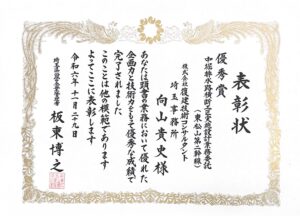 表彰状
優秀賞
中堀排水路横断工実施設計業務委託
（東松山第二幹線）
株式会社復建技術コンサルタント
埼玉事務所
向山貴史様
あなたは頭書の業務において優れた
企画力と技術力をもって優秀な成績で
完了されました
このことは他の模範であります
よってここに表彰します
令和六年十一月二十九日
板東博之